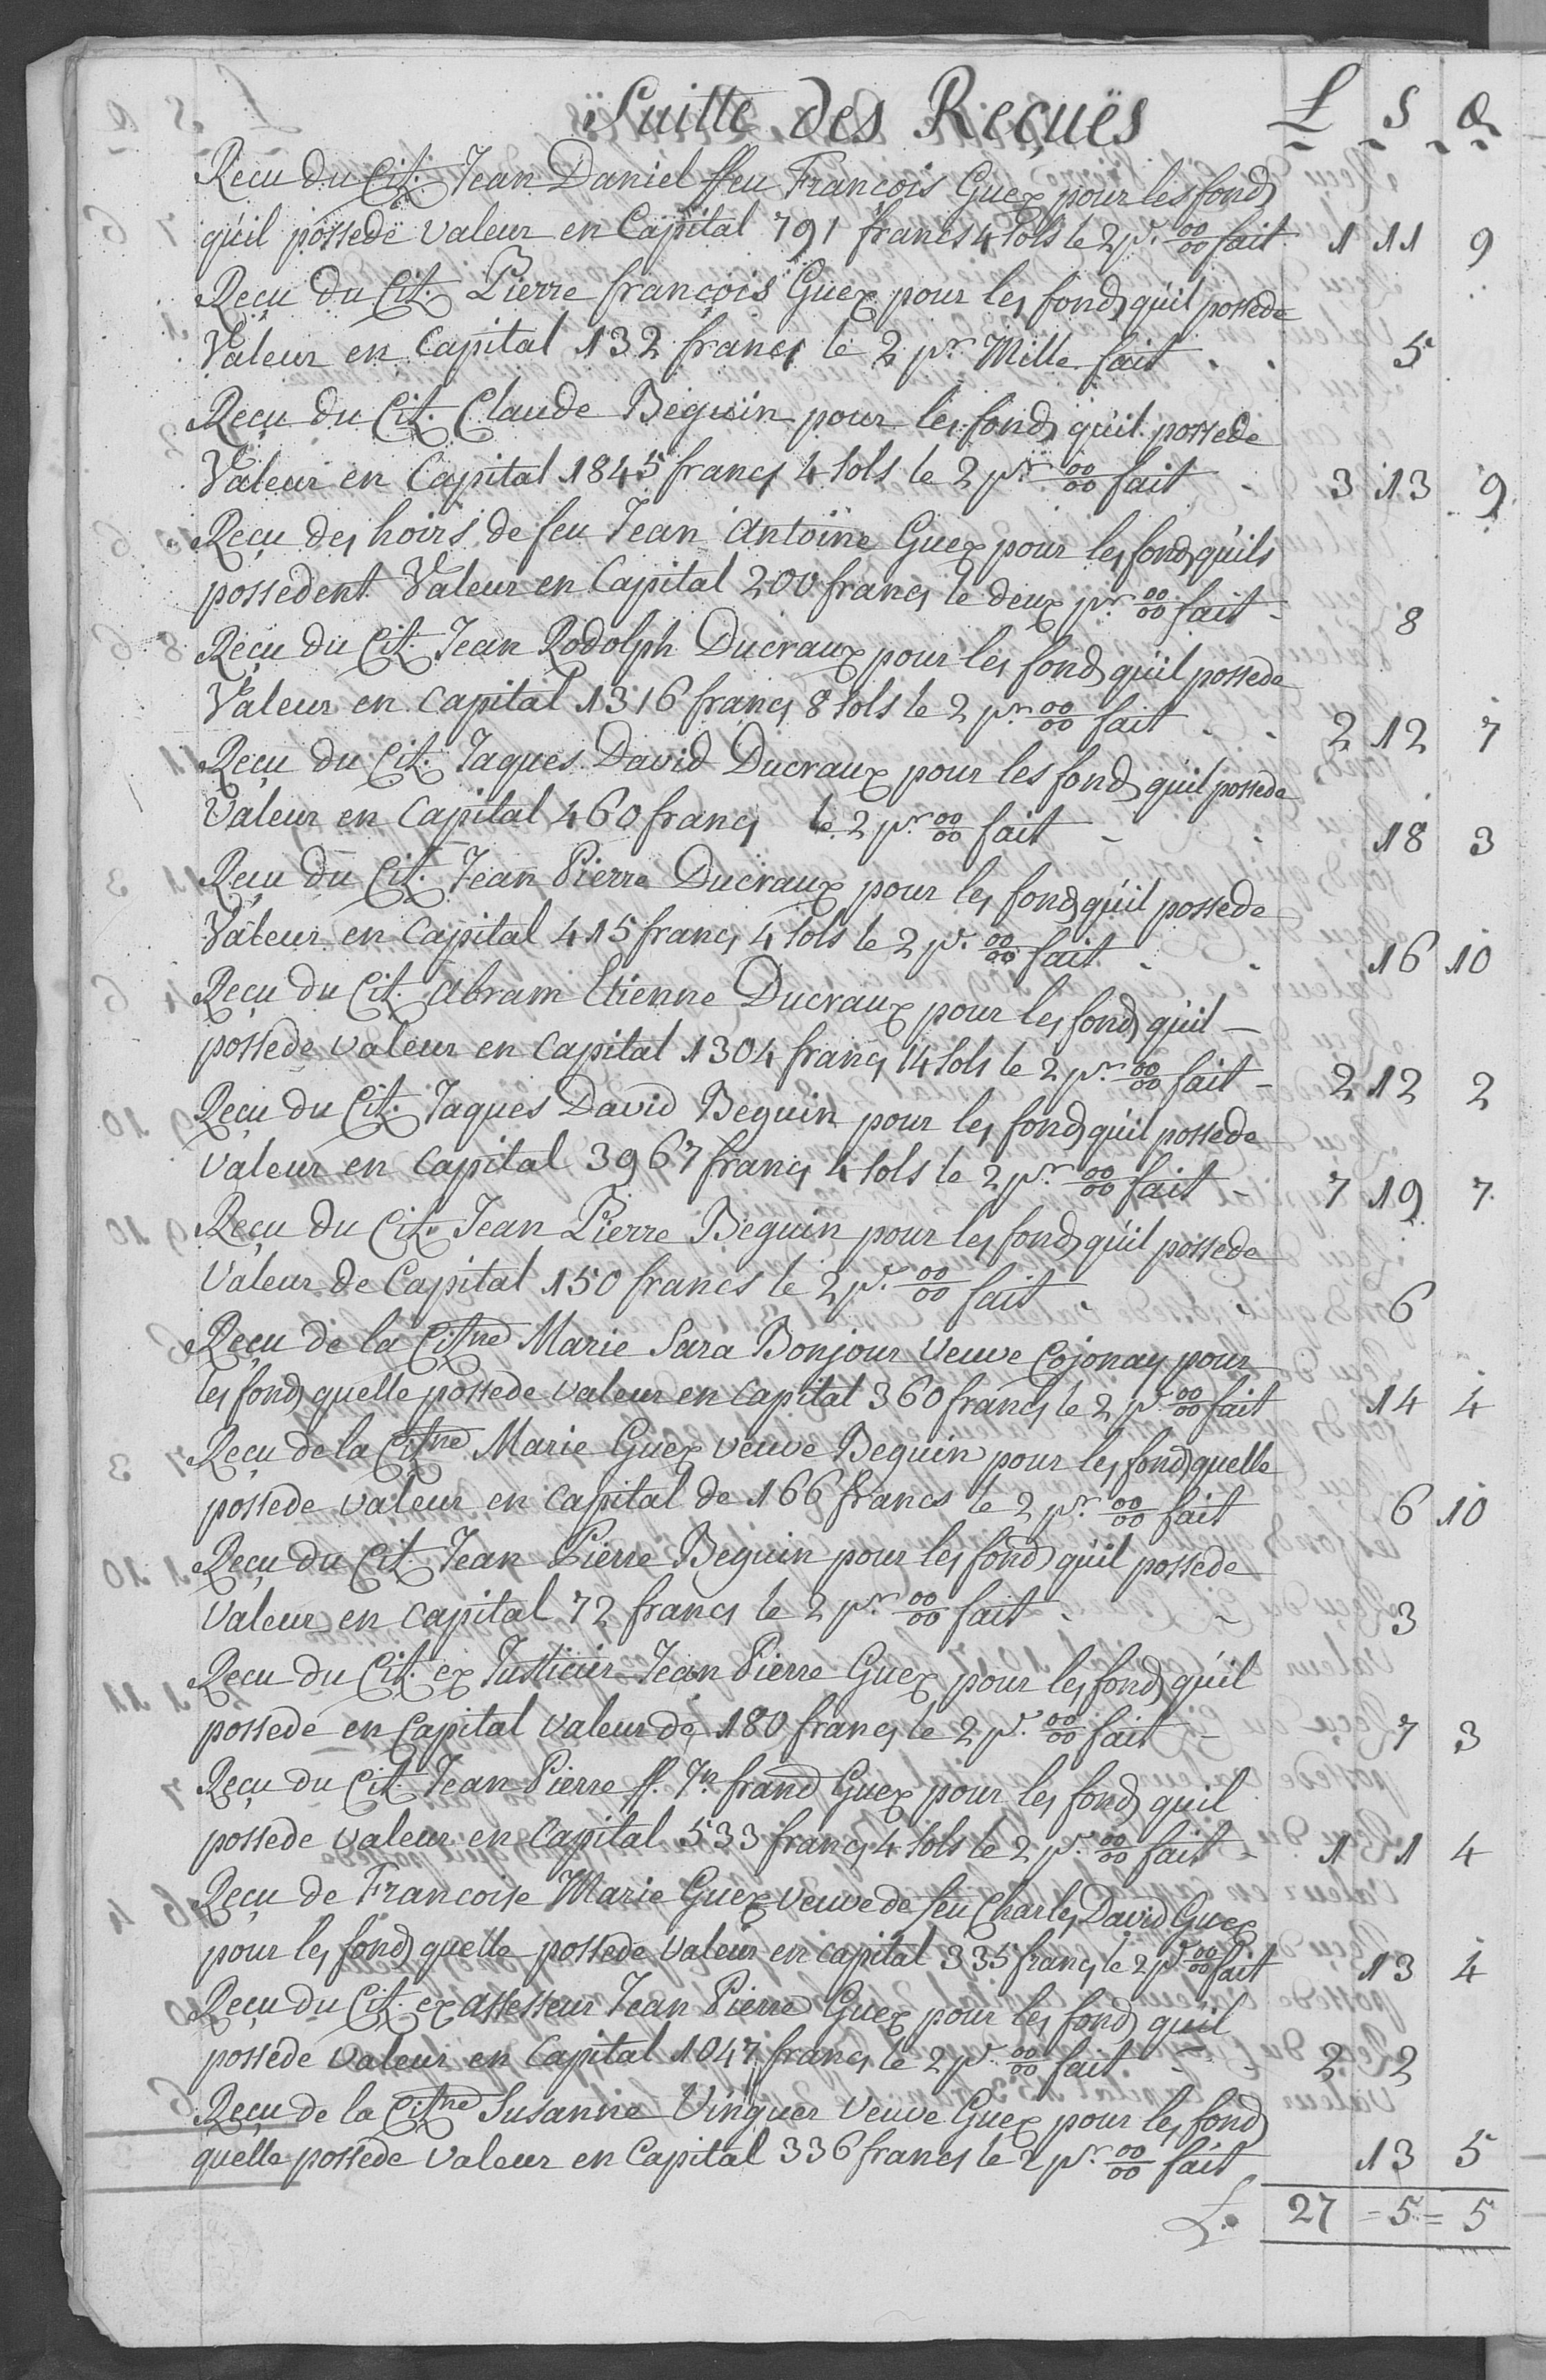 Suitte des Reçuës £ S d
Recu du Cit. Jean Daniel ffeu François Guex pour les fonds
qu'il possede valeur en Capital 791 francs 4 sols le 2 pr. 00/00 fait 1 11 9
Reçu du Cit. Pierre françois Guex pour les fonds qu'il possede
Valeur en Capital 132 francs le 2 pr. Mille fait 5
Reçu du Cit. Claude Beguin pour les fonds qu'il possede
Valeur en Capital 1845 francs 4 sols le 2 pr. 00/00 fait 3 13 9
Reçu des hoirs de feu Jean Antoine Guex pour les fonds qu'ils
possedent Valeur en Capital 200 francs le deux pr. 00/00 fait 8
Reçu du Cit. Jean Rodolph Ducraux pour les fonds qu'il possede
Valeur en Capital 1316 francs 8 sols le 2 pr. 00/00 fait 2 12 7
Reçu du Cit. Jaques David Ducraux pour les fonds qu'il possede
Valeur en Capital 460 francs le 2 pr. 00/00 fait 18 3
Reçu du Cit. Jean Pierre Ducraux pour les fonds qu'il possede
Valeur en Capital 415 francs 4 sols le 2 pr. 00/00 fait 16 10
Reçu du Cit. Abram Etienne Ducraux pour les fonds qu'il
possede valeur en Capital 1304 francs 14 sols le 2 pr. 00/00 fait 2 12 2
Reçu du Cit. Jaques David Beguin pour les fonds qu'il possede
valeur en Capital 3967 francs 4 sols le 2 pr. 00/00 fait 7 19 7
Reçu du Cit. Jean Pierre Beguin pour les fonds qu'il possede
Valeur de Capital 150 francs le 2 pr. 00/00 fait 6
Reçu de la Citne Marie Sara Bonjour veuve Cojonay pour
les fonds quelle possede valeur en Capital 360 francs le 2 pr. 00/00 fait 14 4
Reçu de la Citne Marie Guex veuve Beguin pour les fonds quelle
possede valeur en Capital de 166 francs le 2 pr. 00/00 fait 6 10
Reçu du Cit. Jean Pierre Beguin pour les fonds qu'il possede
Valeur en Capital 72 francs le 2 pr. 00/00 fait 3
Reçu du Cit. ex Justicier Jean Pierre Guex pour les fonds qu'il
possede en Capital valeur de 180 francs le 2 pr. 00/00 fait 7 3
Reçu du Cit. Jean Pierre ff. Jn frand Guex pour les fonds qu'il
possede valeur en Capital 533 francs 4 sols le 2 pr. 00/00 fait 1 1 4
Reçu de Francoise Marie Guex veuve de feu Charles David Guex
pour les fonds quelle possede valeur en capital 335 francs le 2 pr. 00/00 fait 13 4
Reçu du Cit. ex assesseur Jean Pierre Guex pour les fonds qu'il
possede valeur en Capital 1047 francs le 2 pr. 00/00 fait 2 2
Reçu de la Citne Susanne Vinguer veuve Guex pour les fonds
quelle possede valeur en Capital 336 francs le 2 pr. 00/00 fait 13 5
L. 27 = 5 = 5